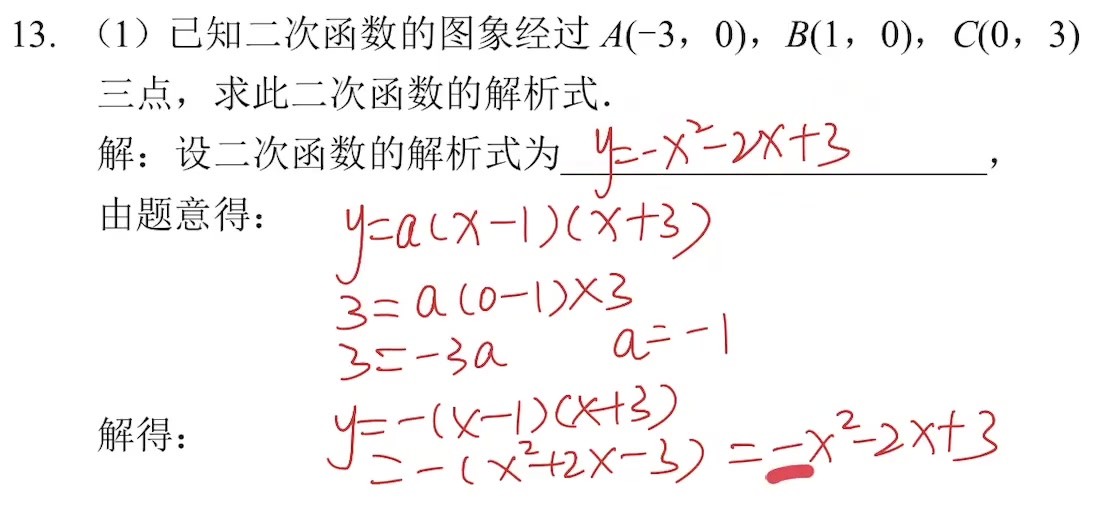 13. （1）已知二次函数的图象经过 A(−3，0)，B(1，0)，C(0，3)
三点，求此二次函数的解析式.
解：设二次函数的解析式为 y=-x²-2x+3 ，
由题意得： y=a(x-1)(x+3)
3=a(0-1)×3
3=-3a a=-1
解得： y=-(x-1)(x+3)
=-(x²+2x-3) =-x²-2x+3